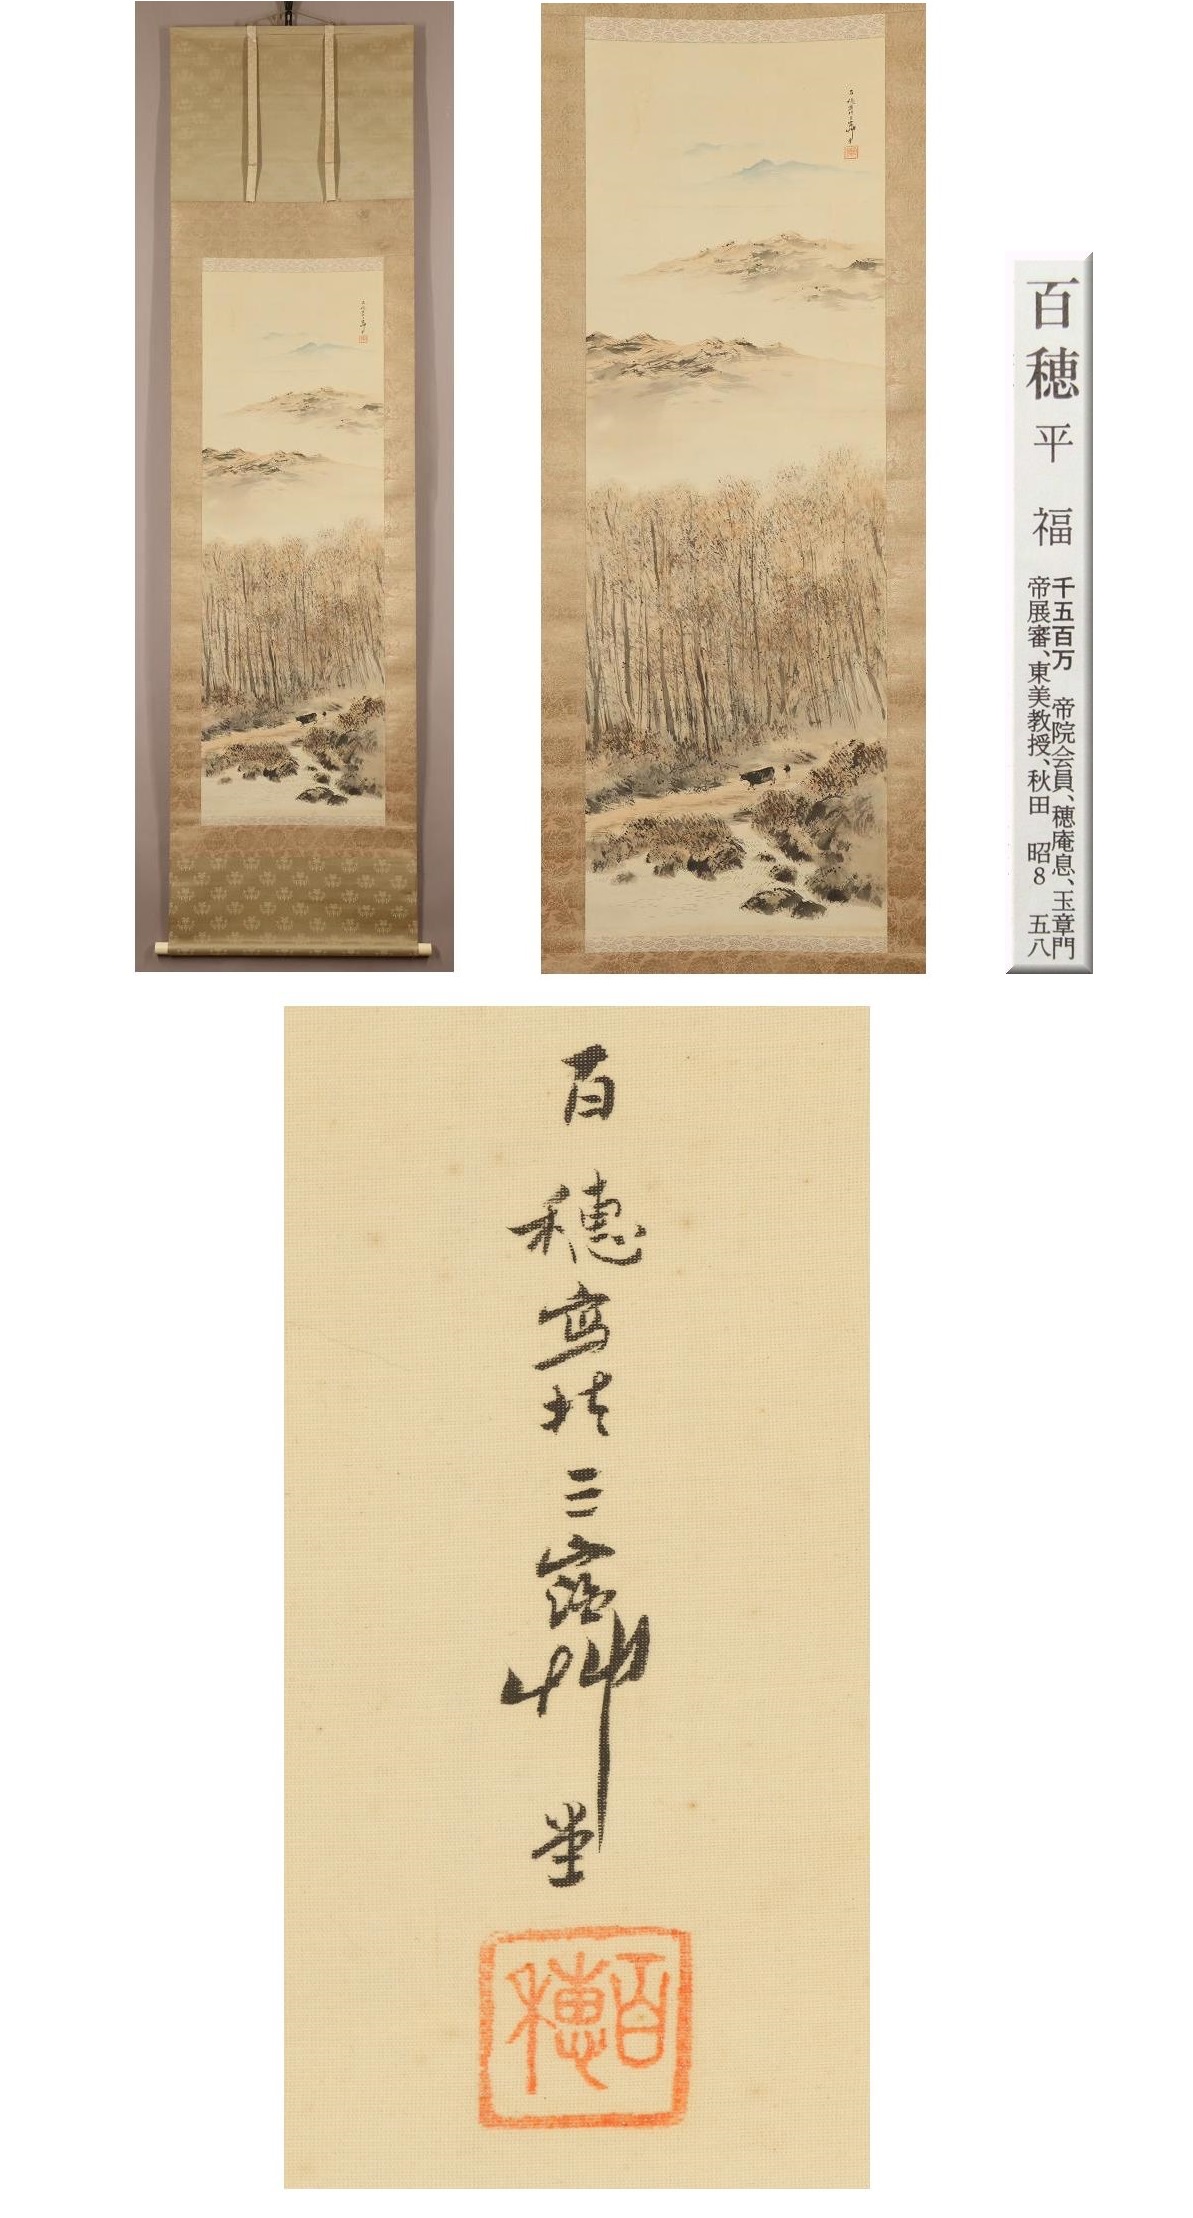 百穂 平福
千五百万 帝院会員、穂庵息、玉章門
帝展審、東美教授、秋田 昭8 五八
百穂写於三宿艸堂
百穂